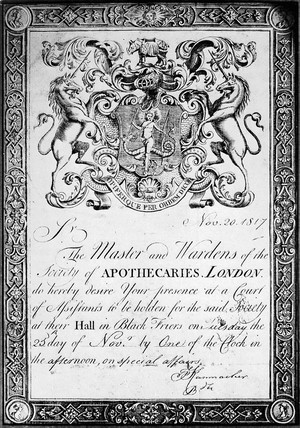 OPIFERQUE PER ORBEM DICOR
Nov. 20. 1817
Sr.
The Master and Wardens of the
Society of APOTHECARIES, LONDON,
do hereby desire Your presence at a Court
of Assistants to be holden for the said Society
at their Hall in Black Friers on Tuesday the
25 day of Novr. by One of the Clock in
the afternoon, on special affairs.